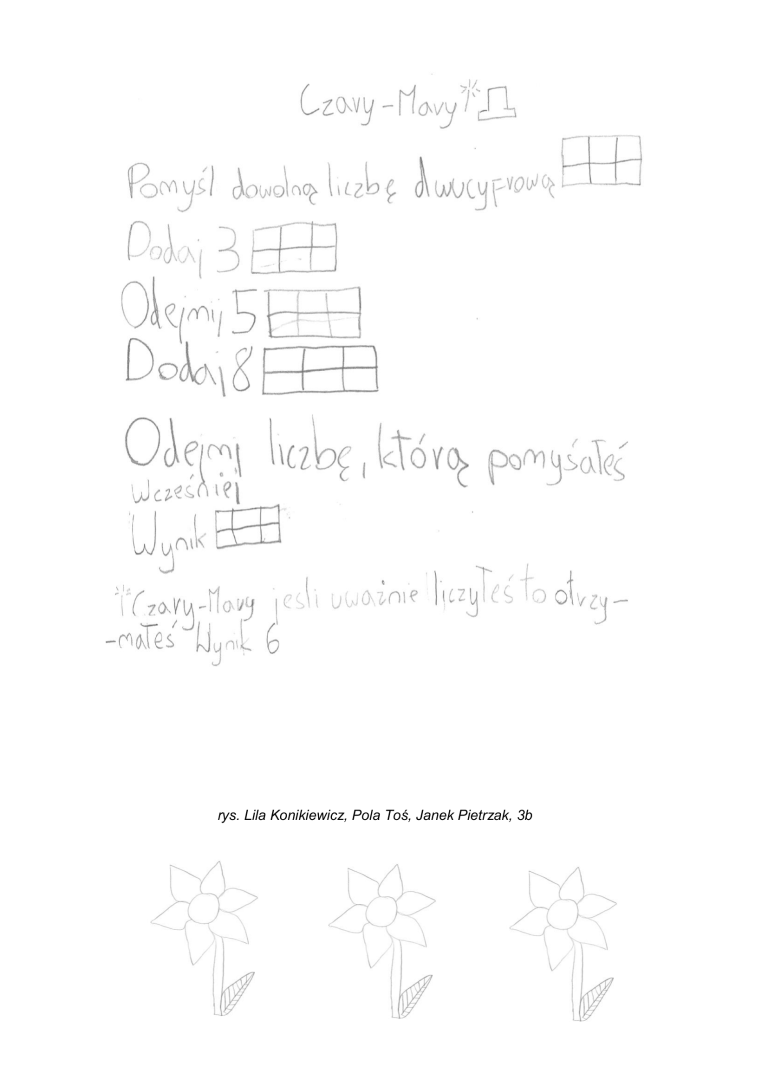 Czary-Mary
Pomyśl dowolną liczbę dwucyfrową
Dodaj 3
Odejmij 5
Dodaj 8
Odejmj liczbę, którą pomyśałeś
wcześniej
Wynik
Czary-Mary jeśli uważnie liczyłeś to otrzy-
-małeś Wynik 6
rys. Lila Konikiewicz, Pola Toś, Janek Pietrzak, 3b